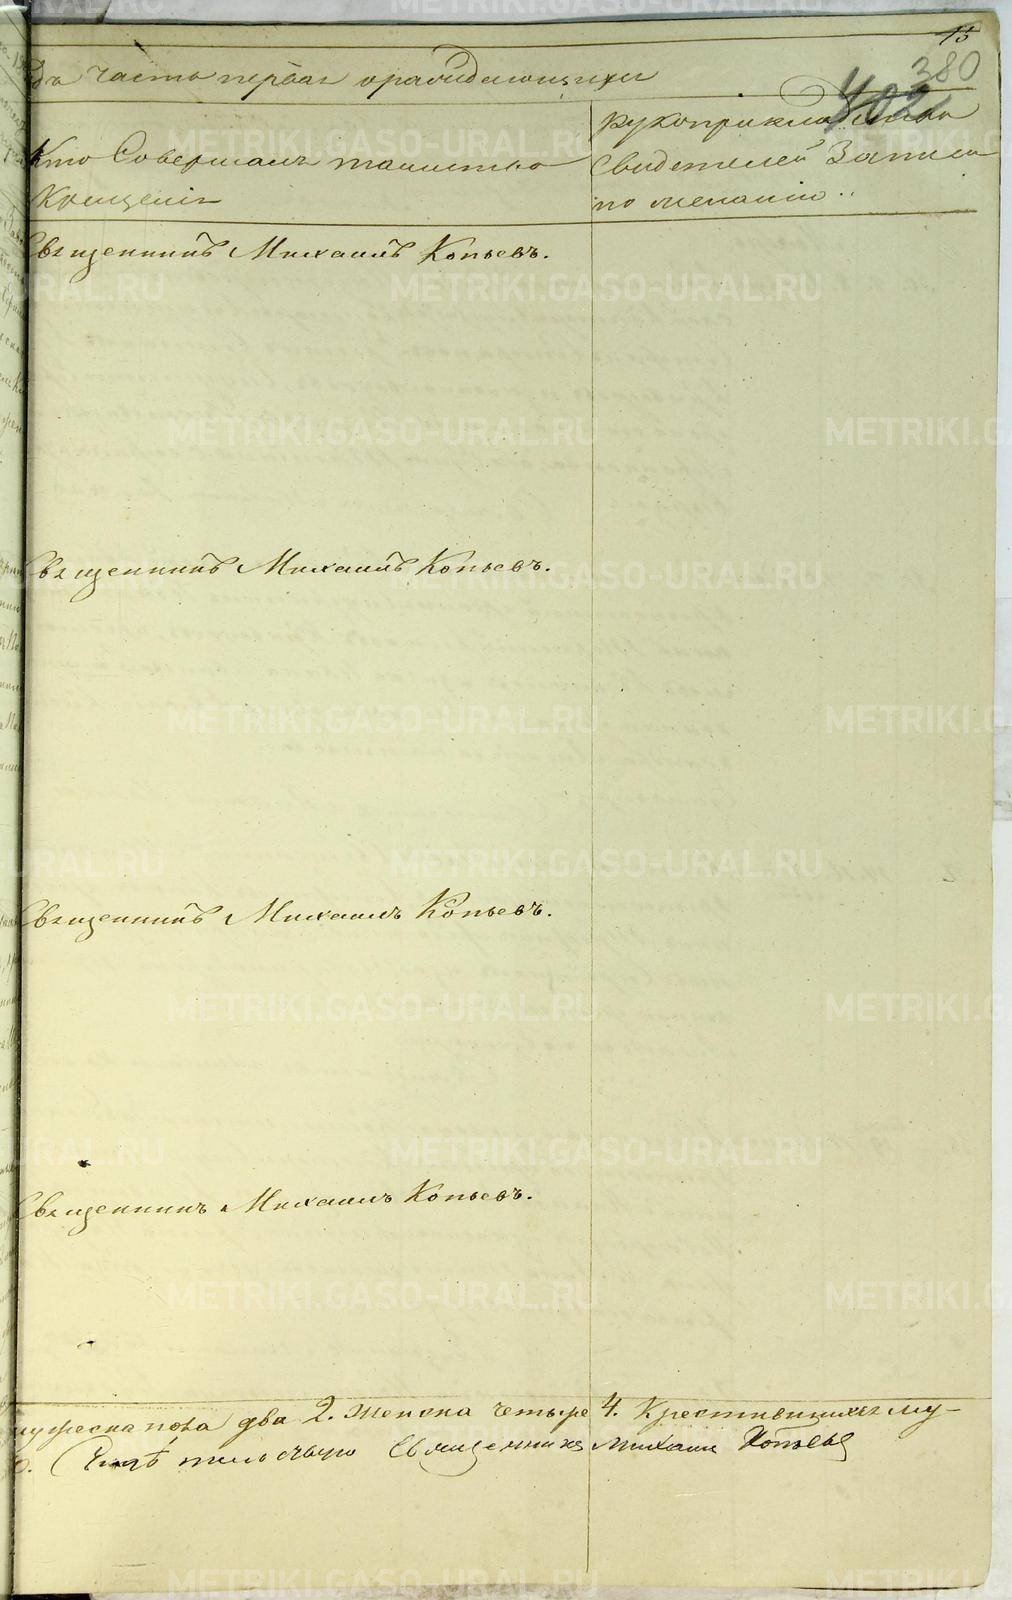 15
380
402
дъ часть первая о раждающихся
Кто Совершалъ таинство
Крещенія
рукоприкладство
Свидетелей Записи
по желанію..
Священникъ Михаилъ Копьевъ.
Священникъ Михаилъ Копьевъ.
Священникъ Михаилъ Копьевъ.
Священникъ Михаилъ Копьевъ.
мужеска пола два 2. женска четыре 4. Крестившихся му-
Священникъ Михаилъ Копьевъ
METRIKI.GASO-URAL.RU